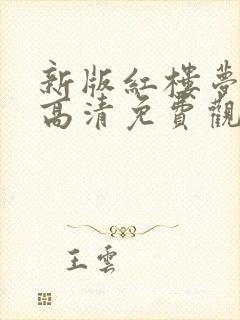 新版紅樓夢
高清免費觀
王雲